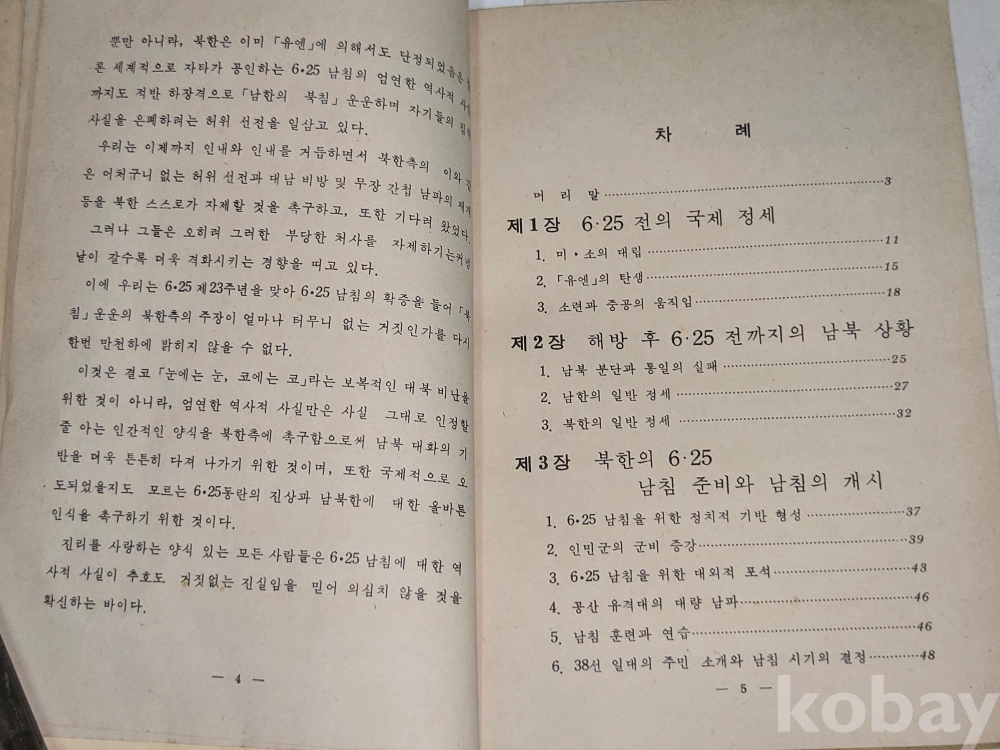 뿐만 아니라, 북한은 이미 「유엔」에 의해서도 단정되었음은
론 세계적으로 자타가 공인하는 6·25 남침의 엄연한 역사적
까지도 적반 하장격으로 「남한의 북침」 운운하며 자기들의
사실을 은폐하려는 허위 선전을 일삼고 있다.
우리는 이제까지 인내와 인내를 거듭하면서 북한측의 이와
은 어처구니 없는 허위 선전과 대남 비방 및 무장 간첩 남파의
등을 북한 스스로가 자제할 것을 촉구하고, 또한 기다려 왔었다.
그러나 그들은 오히려 그러한 부당한 처사를 자제하기는커녕
날이 갈수록 더욱 격화시키는 경향을 띠고 있다.
이에 우리는 6·25 제23주년을 맞아 6·25 남침의 확증을 들어 「북
침」 운운의 북한측의 주장이 얼마나 터무니 없는 거짓인가를 다시
한번 만천하에 밝히지 않을 수 없다.
이것은 결코 「눈에는 눈, 코에는 코」라는 보복적인 대북 비난을
위한 것이 아니라, 엄연한 역사적 사실만은 사실 그대로 인정할
줄 아는 인간적인 양식을 북한측에 촉구함으로써 남북 대화의 기
반을 더욱 튼튼히 다져 나가기 위한 것이며, 또한 국제적으로 오
도되었을지도 모르는 6·25동란의 진상과 남북한에 대한 올바른
인식을 촉구하기 위한 것이다.
진리를 사랑하는 양식 있는 모든 사람들은 6·25 남침에 대한 역
사적 사실이 추호도 거짓없는 진실임을 믿어 의심치 않을 것을
확신하는 바이다.
— 4 —
차 례
머 리 말 ⋯⋯⋯⋯⋯⋯⋯⋯⋯⋯ 3
제1장 6·25 전의 국제 정세
1. 미·소의 대립 ⋯⋯⋯⋯⋯⋯⋯⋯ 11
2. 「유엔」의 탄생 ⋯⋯⋯⋯⋯⋯⋯⋯ 15
3. 소련과 중공의 움직임 ⋯⋯⋯⋯⋯⋯ 18
제2장 해방 후 6·25 전까지의 남북 상황
1. 남북 분단과 통일의 실패 ⋯⋯⋯⋯⋯⋯ 25
2. 남한의 일반 정세 ⋯⋯⋯⋯⋯⋯⋯⋯ 27
3. 북한의 일반 정세 ⋯⋯⋯⋯⋯⋯⋯⋯ 32
제3장 북한의 6·25
남침 준비와 남침의 개시
1. 6·25 남침을 위한 정치적 기반 형성 ⋯⋯⋯⋯ 37
2. 인민군의 군비 증강 ⋯⋯⋯⋯⋯⋯⋯⋯ 39
3. 6·25 남침을 위한 대외적 포석 ⋯⋯⋯⋯⋯⋯ 43
4. 공산 유격대의 대량 남파 ⋯⋯⋯⋯⋯⋯⋯⋯ 46
5. 남침 훈련과 연습 ⋯⋯⋯⋯⋯⋯⋯⋯ 46
6. 38선 일대의 주민 소개와 남침 시기의 결정 ⋯⋯⋯ 48
— 5 —
kobay